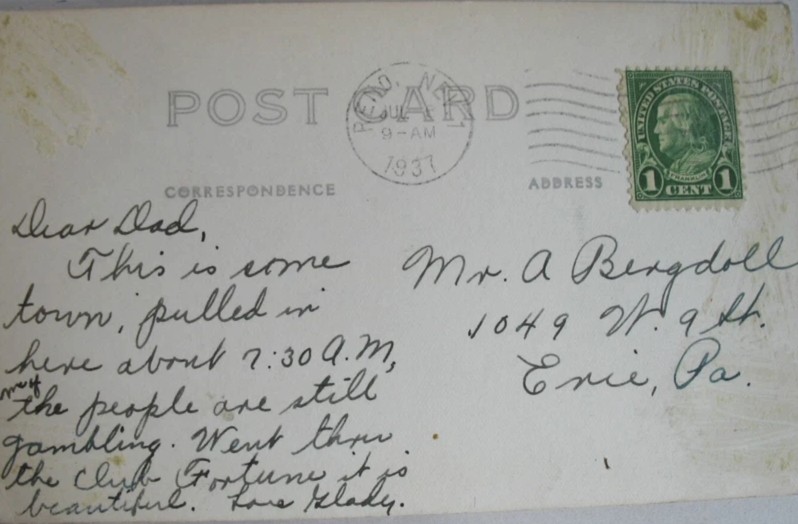 POST CARD
RENO, NEV
JUL
9-AM
1937
UNITED STATES POSTAGE
FRANKLIN
1 CENT 1
CORRESPONDENCE
ADDRESS
Dear Dad,
This is some
town, pulled in
here about 7:30 A.M,
the people are still
gambling. Went thru
the Club Fortune it is
beautiful. Love Gladys.
Mr. A Bergdoll
1049 W. 9 St.
Erie, Pa.